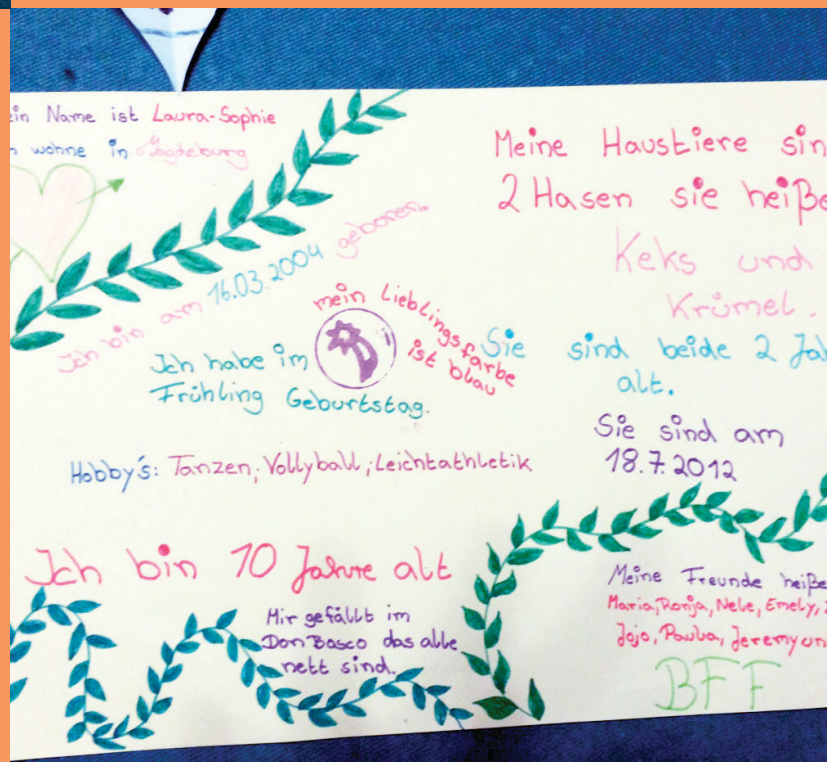 ein Name ist Laura-Sophie
wohne in Magdeburg
Ich bin am 16.03.2004 geboren.
Ich habe im
Frühling Geburtstag.
mein Lieblingsfarbe
ist blau
Hobby's: Tanzen, Vollyball, Leichtathletik
Ich bin 10 Jahre alt
Mir gefällt im
Don Bosco das alle
nett sind.
Meine Haustiere sin
2 Hasen sie heiße
Keks und
Krümel.
Sie sind beide 2 Jah
alt.
Sie sind am
18.7.2012
Meine Freunde heiße
Maria, Ronja, Nele, Emely,
Jojo, Paula, Jeremy un
BFF